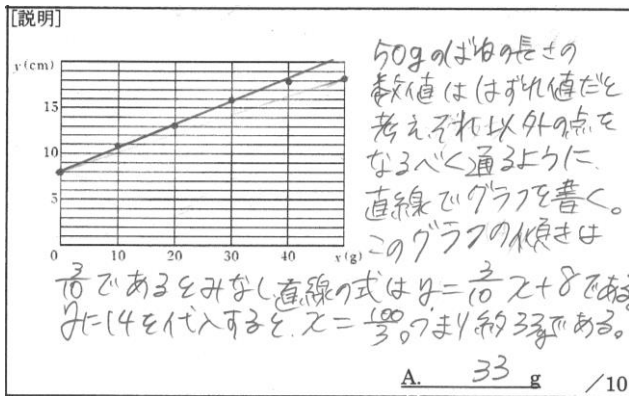 [説明]
y(cm)
15
10
5
0 10 20 30 40 x(g)
50gのばねの長さの
数値ははずれ値だと
考え、それ以外の点を
なるべく通るように、
直線でグラフを書く。
このグラフの傾きは
3/10であるとみなし直線の式はy=3/10x+8である
yに14を代入すると、x=100/3。つまり約33gである。
A. 33 g /10